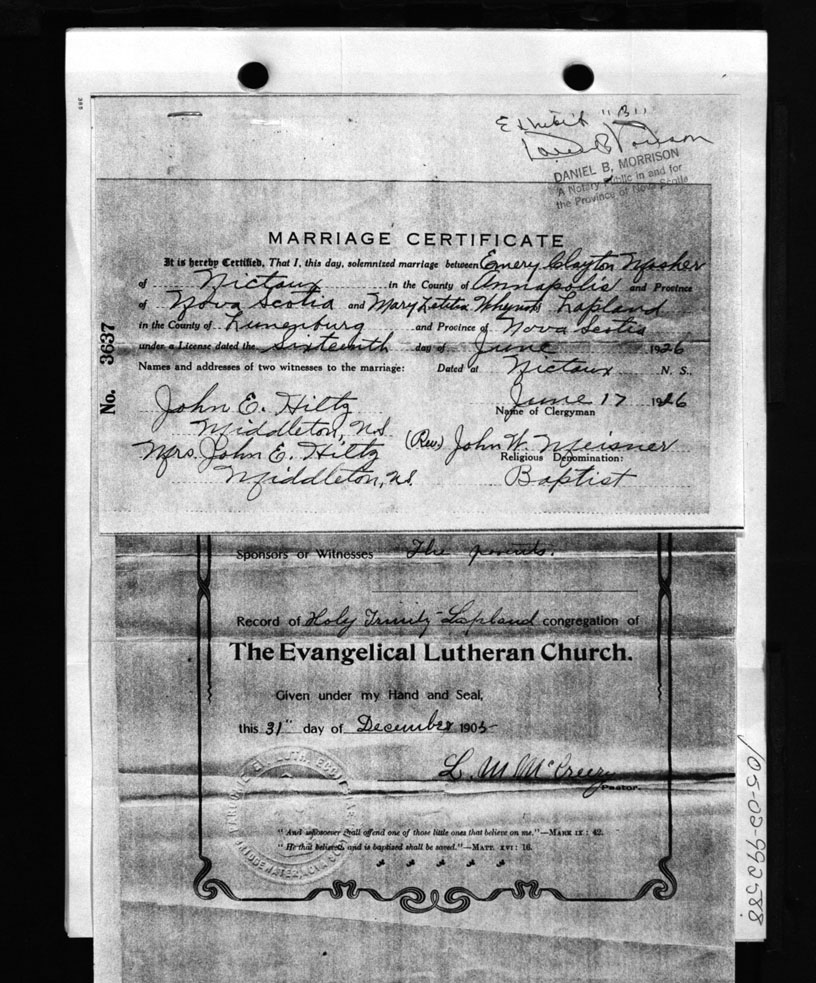 Exhibit "B"
DANIEL B. MORRISON
A Notary Public in and for
the Province of Nova Scotia
MARRIAGE CERTIFICATE
It is hereby Certified, That I, this day, solemnized marriage between Emery Clayton Mosher
of Nictaux in the County of Annapolis and Province
of Nova Scotia and Mary Letitia Whynot Lapland
in the County of Lunenburg and Province of Nova Scotia
under a License dated the Sixteenth day of June 1926
Names and addresses of two witnesses to the marriage: Dated at Nictaux N. S.,
June 17 1926
John E. Hiltz Name of Clergyman
Middleton, N.S. (Rev.) John W. Meisner
Mrs. John E. Hiltz Religious Denomination:
Middleton, N.S. Baptist
No. 3637
Sponsors or Witnesses The parents.
Record of Holy Trinity Lapland congregation of
The Evangelical Lutheran Church.
Given under my Hand and Seal,
this 31" day of December 1905
L. M. McCreery
Pastor.
"And whosoever shall offend one of those little ones that believe on me."—MARK IX: 42.
"He that believeth and is baptised shall be saved."—MATT. XVI: 16.
105-02-992588